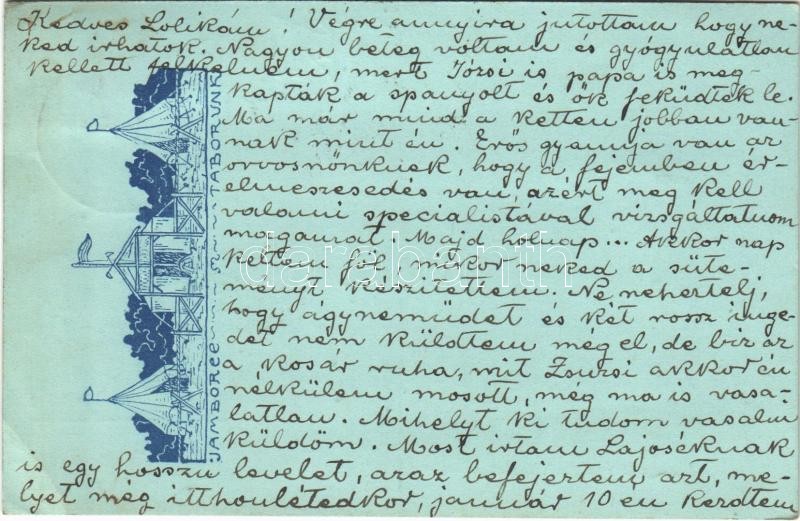 Kedves Lolikám! Végre annyira jutottam hogy ne-
ked irhatok. Nagyon beteg voltam és gyógyulatlan
kellett felkelnem, mert Józsi is papa is meg-
kapták a spanyolt és ők feküdtek le.
Ma már mind a ketten jobban van-
nak mint én. Erős gyanuja van az
orvosnönknek, hogy a fejemben ér-
elmeszesedés van, azért meg kell
valami specialistával vizsgáltatnom
magamat. Majd holnap... Akkor nap
keltem föl, mikor neked a süte-
ményt készitettem. Ne neheztelj,
hogy ágynemüdet és két rossz inge-
det nem küldtem még el, de biz az
a kosár ruha, mit Zsuzsi akkor én
nélkülem mosott, még ma is vasa-
latlan. Mihelyt ki tudom vasalni
küldöm. Most irtam Lajoséknak
is egy hosszu levelet, azaz befejeztem azt, me-
lyet még itthonlétedkor, január 10 én kezdtem
JAMBOREE TÁBORUNK
darabanth